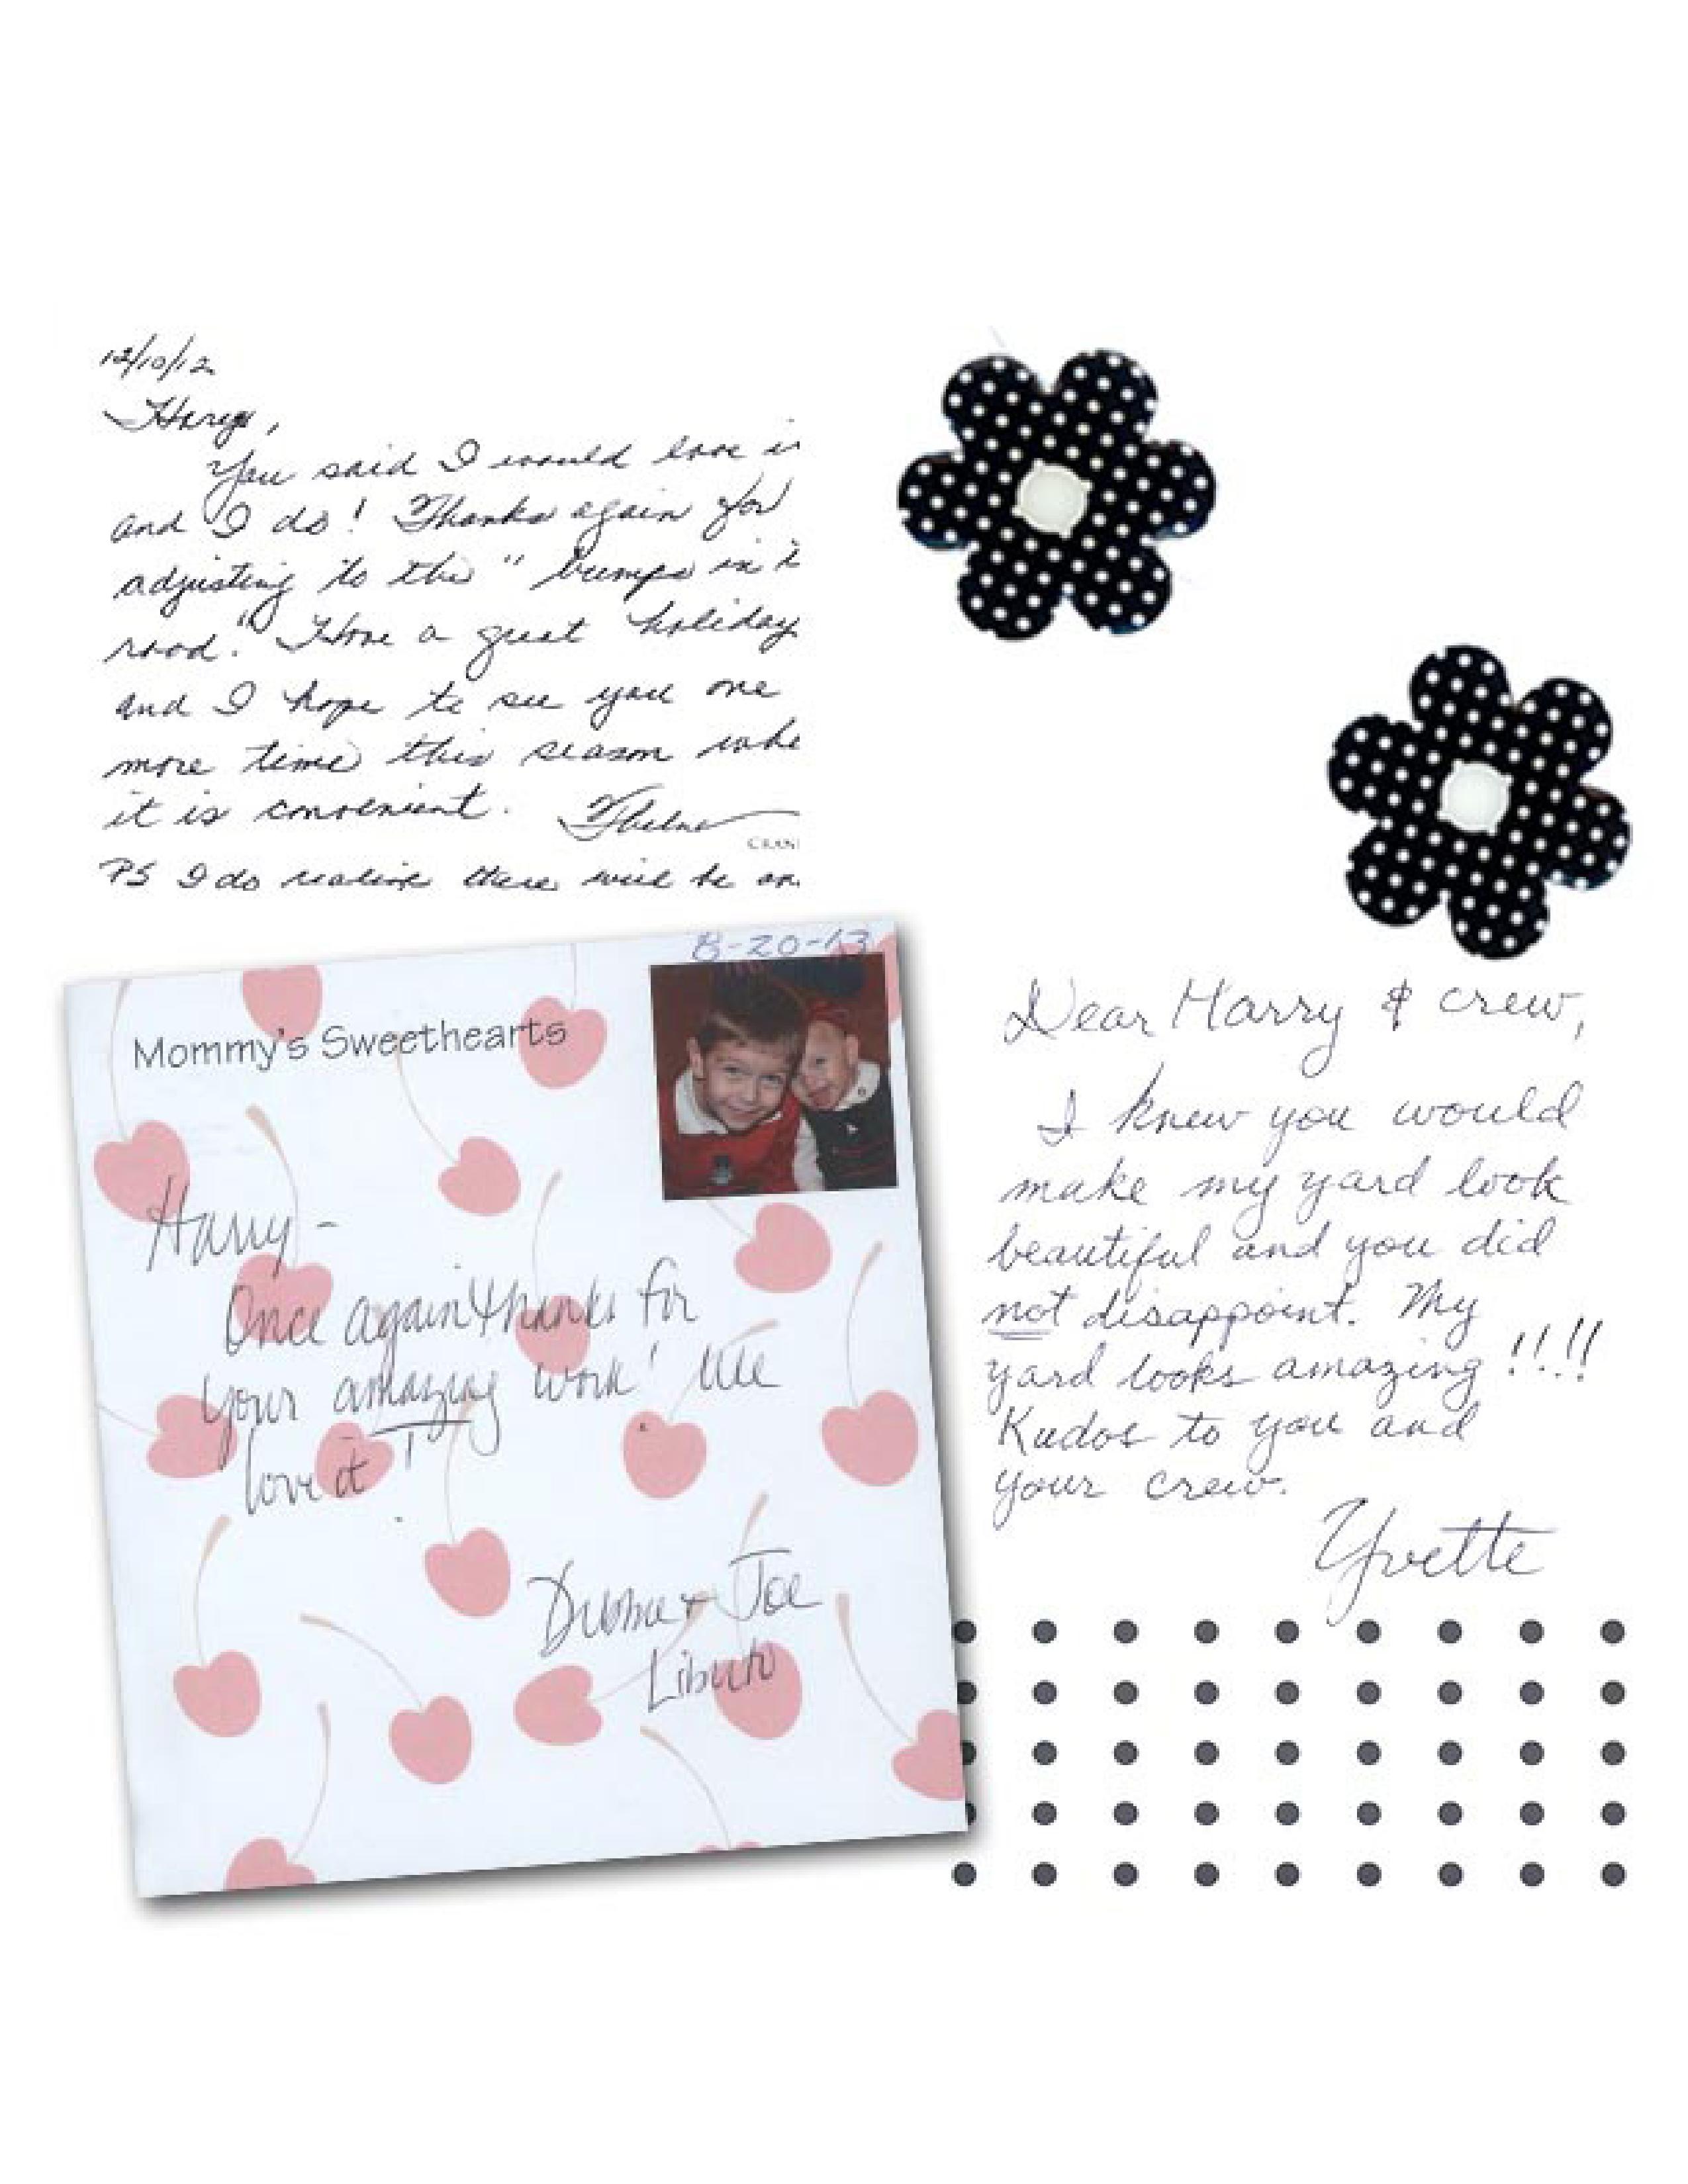 12/10/12
Harry,
You said I would love
and I do! Thanks again for
adjusting to the "bumps in
road." Have a great holiday
and I hope to see you one
more time this season
it is convenient.
CRAN
PS I do realize there will be
8-20-13
Mommy's Sweethearts
Harry-
Once again thanks for
your amazing work! We
love it!
& Joe
Dear Harry & crew,
I knew you would
make my yard look
beautiful and you did
not disappoint. My
yard looks amazing!!!!
Kudos to you and
your crew.
Yvette